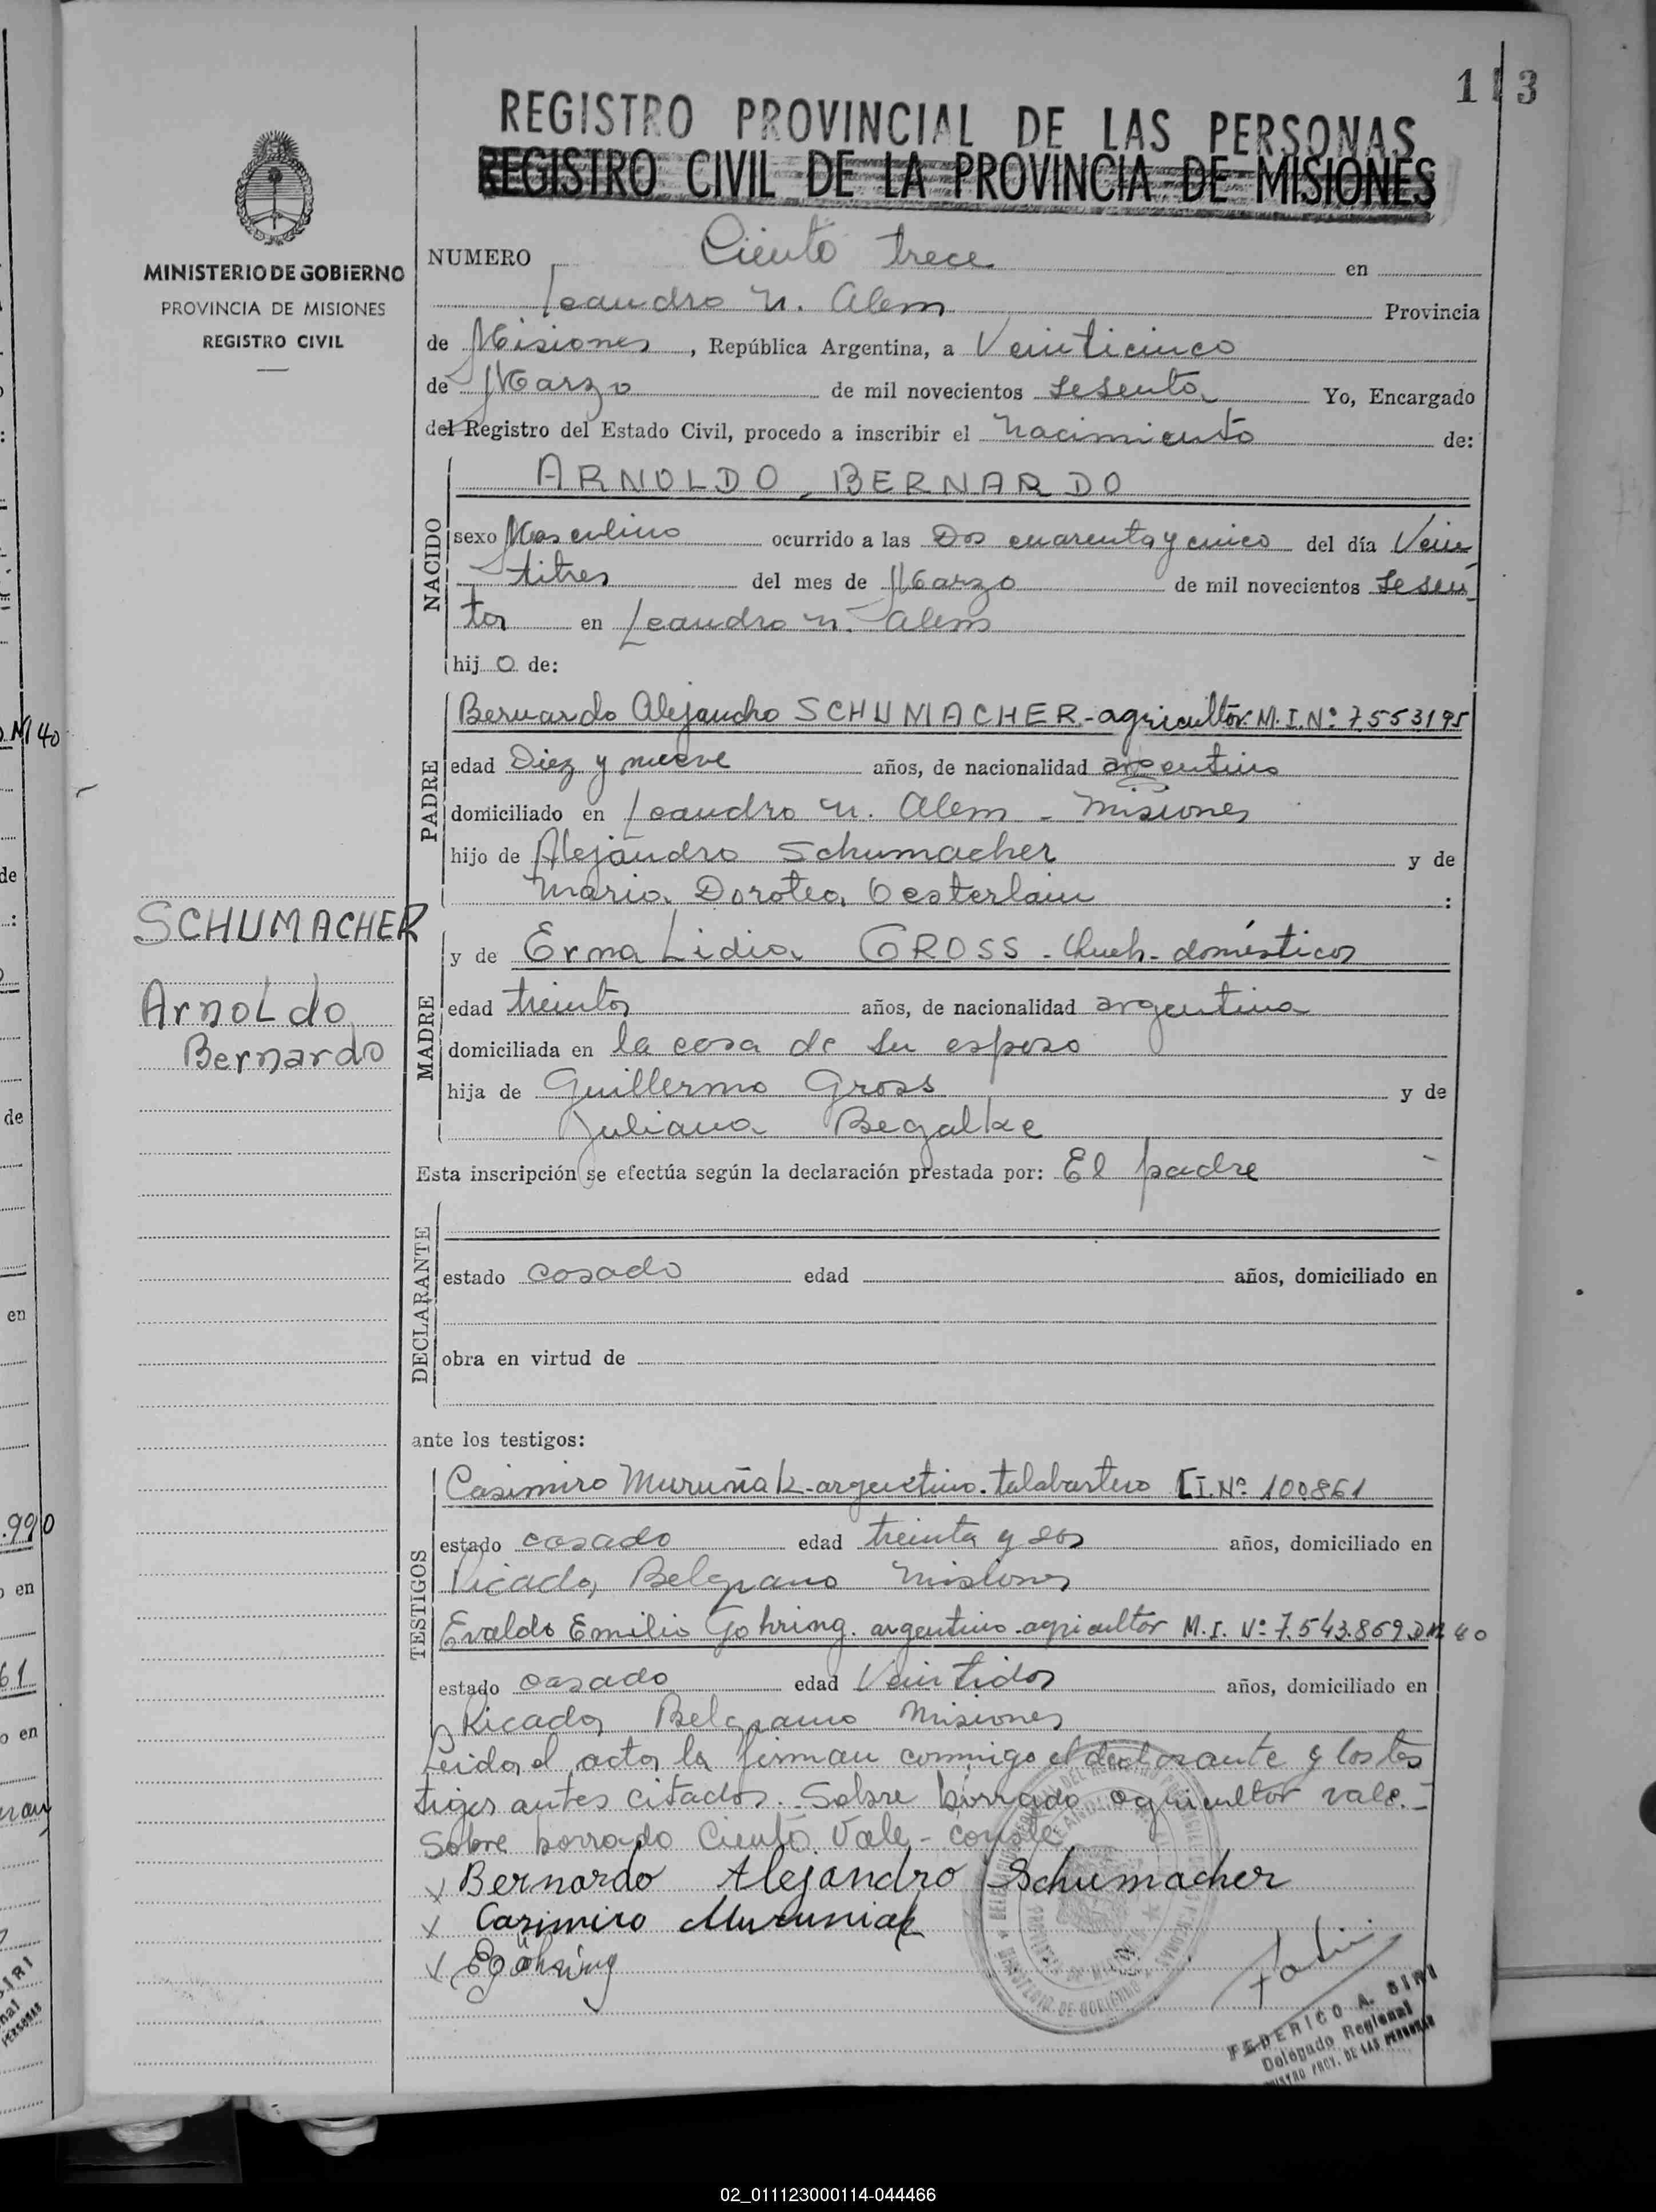 113
REGISTRO PROVINCIAL DE LAS PERSONAS
REGISTRO CIVIL DE LA PROVINCIA DE MISIONES
MINISTERIO DE GOBIERNO
PROVINCIA DE MISIONES
REGISTRO CIVIL
NUMERO Ciento trece en
Leandro N. Alem Provincia
de Misiones, República Argentina, a Veinticinco
de Marzo de mil novecientos sesenta Yo, Encargado
del Registro del Estado Civil, procedo a inscribir el nacimiento de:
NACIDO
ARNOLDO BERNARDO
sexo Masculino ocurrido a las Dos cuarenta y cinco del día Vein
titres del mes de Marzo de mil novecientos sesen
ta en Leandro N. Alem
hijo de:
PADRE
Bernardo Alejandro SCHUMACHER - agricultor M.I.Nº 7.553.195
edad Diez y nueve años, de nacionalidad argentino
domiciliado en Leandro N. Alem - Misiones
hijo de Alejandro Schumacher y de
Maria Dorotea Oesterlain :
SCHUMACHER
Arnoldo
Bernardo
MADRE
y de Erma Lidia GROSS - Queh. domésticos
edad treinta años, de nacionalidad argentina
domiciliada en la casa de su esposo
hija de Guillermo Gross y de
Juliana Begalke
Esta inscripción se efectúa según la declaración prestada por: El padre
DECLARANTE
estado casado edad años, domiciliado en
obra en virtud de
ante los testigos:
TESTIGOS
Casimiro Muruñak - argentino - talabartero C.I.Nº 100861
estado casado edad treinta y dos años, domiciliado en
Picada Belgrano Misiones
Evaldo Emilio Gohring. argentino - agricultor M.I. Nº 7.543.869 DM 40
estado casado edad Veintidos años, domiciliado en
Picada Belgrano Misiones
Leida el acta la firman conmigo el declarante y los tes
tigos antes citados. Sobre borrado agricultor vale.-
Sobre borrado Ciento Vale - conste
x Bernardo Alejandro Schumacher
x Casimiro Muruniak
x E göhring
FEDERICO A. SIRI
Delegado Regional
REGISTRO PROV. DE LAS PERSONAS
02_011123000114-044466